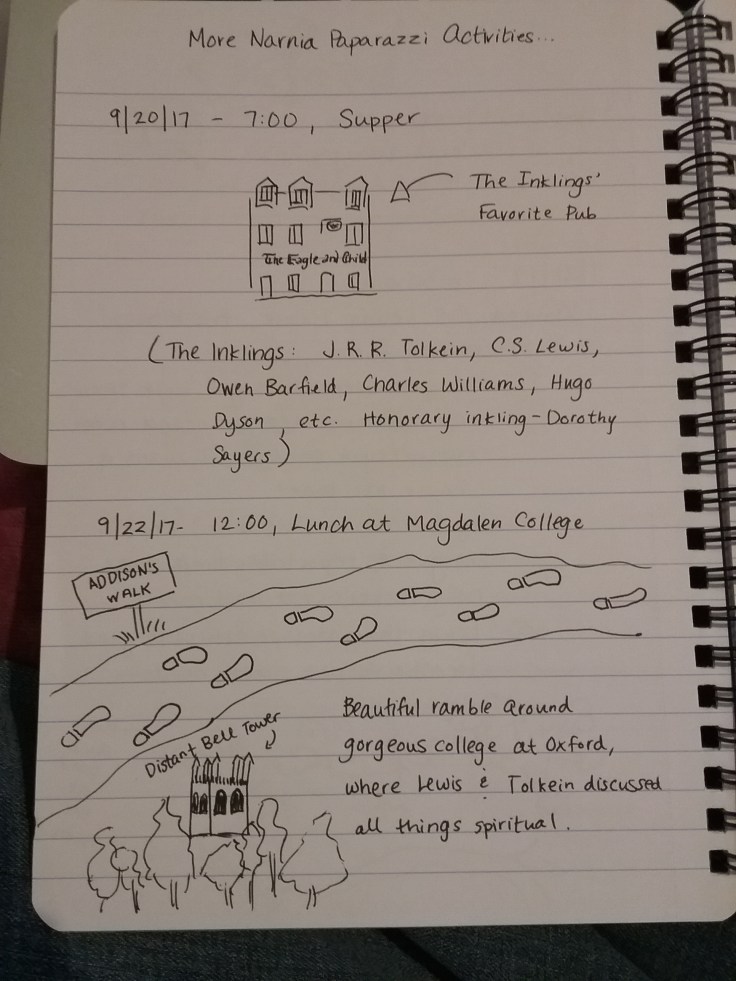 More Narnia Paparazzi Activities...
9/20/17 - 7:00, Supper
The Inklings'
Favorite Pub
The Eagle and Child
(The Inklings: J.R.R. Tolkein, C.S. Lewis,
Owen Barfield, Charles Williams, Hugo
Dyson, etc. Honorary inkling - Dorothy
Sayers)
9/22/17- 12:00, Lunch at Magdalen College
ADDISON'S
WALK
Distant Bell Tower
Beautiful ramble around
gorgeous college at Oxford,
where Lewis & Tolkein discussed
all things spiritual.